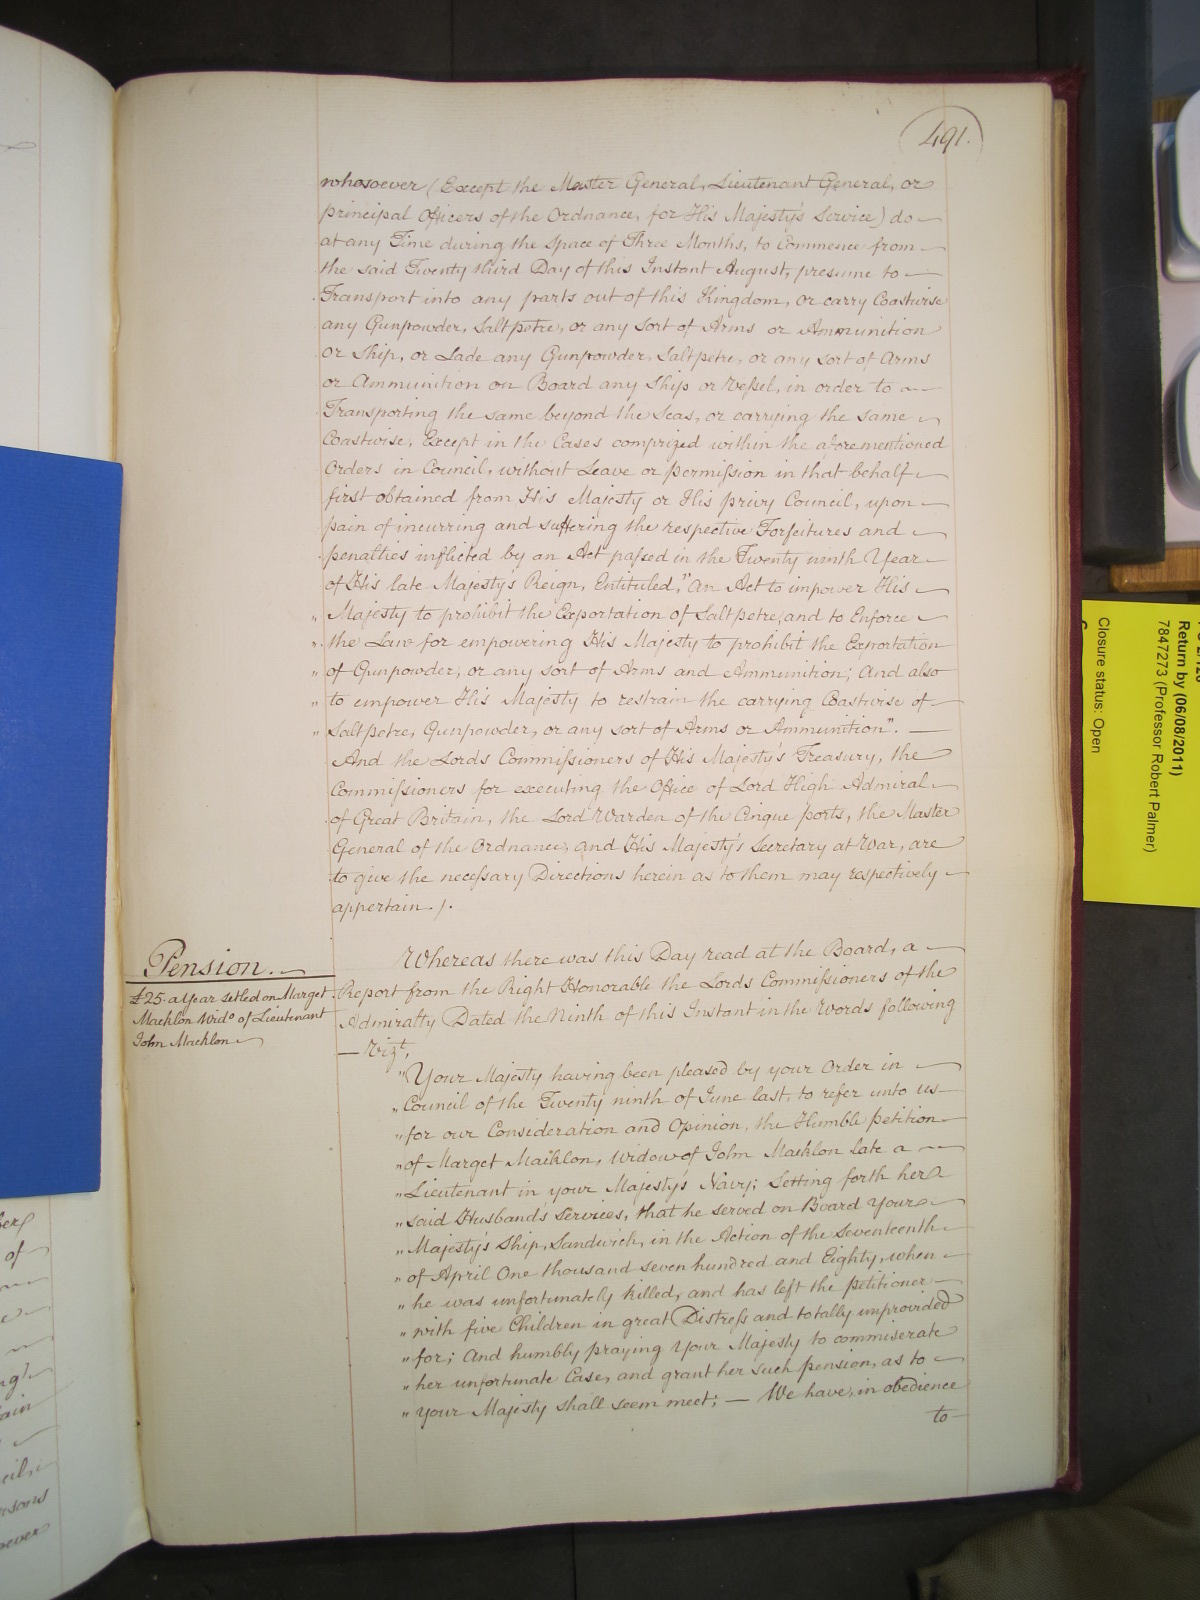 491.
whosoever (Except the Master General, Lieutenant General, or
principal Officers of the Ordnance, for His Majesty's Service) do
at any Time during the Space of Three Months, to Commence from
the said Twenty third Day of this Instant August, presume to
Transport into any parts out of this Kingdom, or carry Coastwise
any Gunpowder, Saltpetre, or any sort of Arms or Ammunition
or Ship, or Lade any Gunpowder, Saltpetre, or any sort of Arms
or Ammunition on Board any Ship or Vessel, in order to
Transporting the same beyond the Seas, or carrying the same
Coastwise, Except in the Cases comprized within the aforementioned
Orders in Council, without Leave or permission in that behalf
first obtained from His Majesty or His privy Council, upon
pain of incurring and suffering the respective Forfeitures and
penalties inflicted by an Act passed in the Twenty ninth Year
of His late Majesty's Reign, Entituled, "An Act to impower His
" Majesty to prohibit the Exportation of Saltpetre, and to Enforce
" the Law for empowering His Majesty to prohibit the Exportation
" of Gunpowder, or any sort of Arms and Ammunition; And also
" to empower His Majesty to restrain the carrying Coastwise of
" Saltpetre, Gunpowder, or any sort of Arms or Ammunition". —
And the Lords Commissioners of His Majesty's Treasury, the
Commissioners for executing the Office of Lord High Admiral
of Great Britain, the Lord Warden of the Cinque ports, the Master
General of the Ordnance, and His Majesty's Secretary at War, are
to give the necessary Directions herein as to them may respectively
appertain ./.
Pension.
£25 a Year setled on Marget
Macklon Wido of Lieutenant
John Macklon
Whereas there was this Day read at the Board, a
Report from the Right Honorable the Lords Commissioners of the
Admiralty Dated the Ninth of this Instant in the Words following
— Vizt,
"Your Majesty having been pleased by your Order in
" Council of the Twenty ninth of June last, to refer unto us
" for our Consideration and Opinion, the Humble petition
" of Marget Maiklon, Widow of John Macklon late a
" Lieutenant in your Majesty's Navy; Setting forth her
" said Husbands Services, that he served on Board Your
" Majesty's Ship, Sandwich, in the Action of the Seventeenth
" of April One thousand seven hundred and Eighty, when
" he was unfortunately killed, and has left the petitioner
" with five Children in great Distress and totally unprovided
" for; And humbly praying Your Majesty to commiserate
" her unfortunate Case, and grant her such pension, as to
" your Majesty shall seem meet; — We have, in obedience
to
Return by (06/08/2011)
7847273 (Professor Robert Palmer)
Closure status: Open